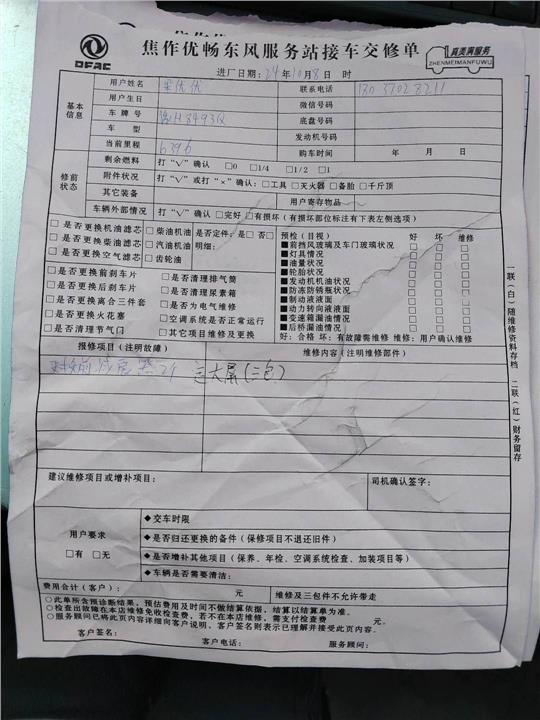 DFAC
焦作优畅东风服务站接车交修单
真美满服务
ZHENMEIMANFUWU
进厂日期：24年10月8日 时
基本信息
用户姓名
联系电话 13037028211
用户生日
微信号码
车牌号 豫H8493Q
底盘号码
车型
发动机号码
当前里程 6396
购车时间 年 月 日
修前状态
剩余燃料 打“√”确认 □0 □1/4 □1/2 □1
附件状况 打“√”或打“×”确认：□工具 □灭火器 □备胎 □千斤顶
其它装备
用户寄存物品
车辆外部情况 打“√”确认 □完好 □有损坏（有损坏部位标注有下表左侧选项）
□是否更换机油滤芯 □柴油机油 是否定件：□是 □否
□是否更换柴油滤芯 □汽油机油 明细：
□是否更换空气滤芯 □齿轮油
□是否更换前刹车片 □是否清理排气筒
□是否更换后刹车片 □是否清理尿素箱
□是否更换离合三件套 □是否为电气维修
□是否更换火花塞 □空调系统是否正常运行
□是否清理节气门 □其它项目维修及更换
预检（目视） 好 坏 维修
■前挡风玻璃及车门玻璃状况 □ □ □
■灯具情况 □ □ □
■油量状况 □ □ □
■轮胎状况 □ □ □
■发动机机油状况 □ □ □
■防冻防锈瓶状况 □ □ □
■制动液液面 □ □ □
■动力转向液液面 □ □ □
■变速箱漏油情况 □ □ □
■后桥漏油情况 □ □ □
好：合格 坏：有故障需维修 维修：用户确认维修
报修项目（注明故障）
维修内容（注明维修部件）
大屏（三包）
建议维修项目或增补项目：
司机确认签字：
用户要求
□有 □无
◆交车时限
◆是否归还更换的备件（保修项目不退还旧件）
◆是否增补其他项目（保养、年检、空调系统检查、加装项目等）
◆车辆是否需要清洁：
费用合计（客户）： 元
维修及三包件不允许带走
○此单所含预诊断结果，预估费用及时间不做结算依据，结算以结算单为准。
○检查出故障在本店维修免收检查费，若不在本店维修，需支付检查费 元。
○服务顾问已将此页内容详细向客户说明，客户签名则表示已理解并接受此页内容。
客户签名：
客户电话：
服务顾问：
一联（白）随维修资料存档 二联（红）财务留存